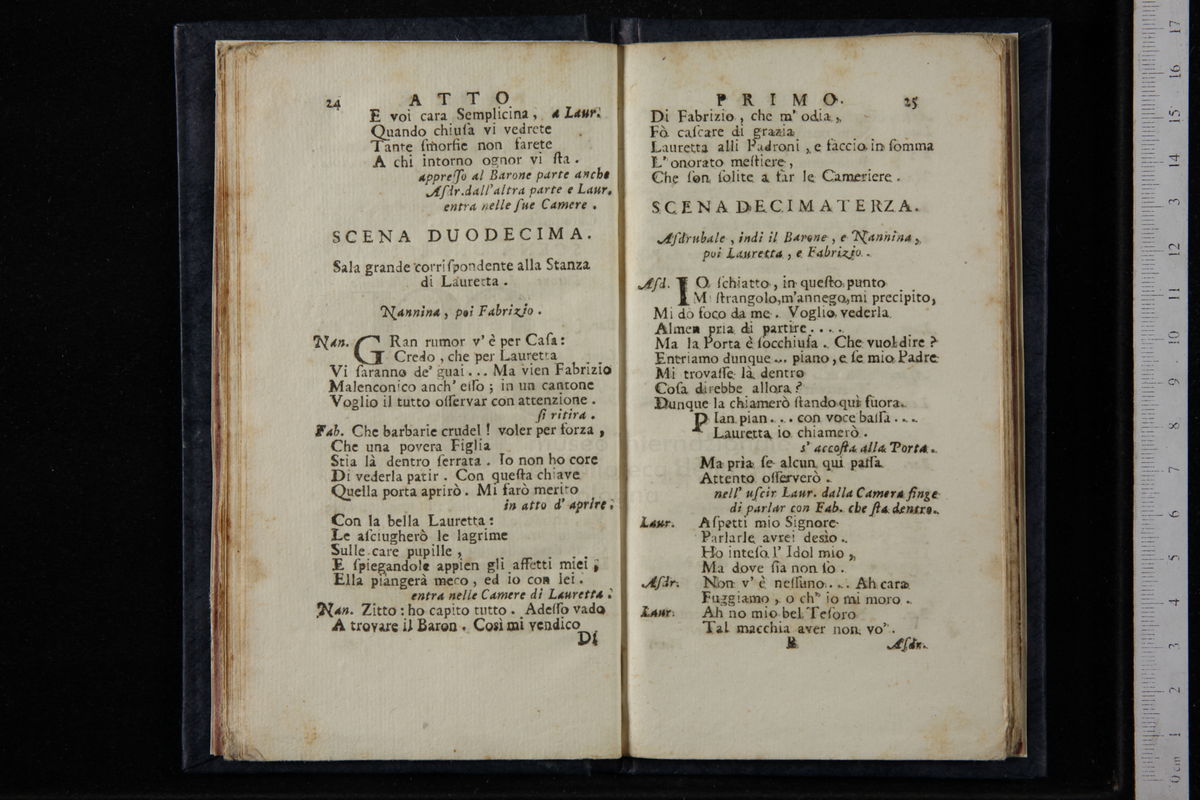 24 ATTO
E voi cara Semplicina, a Laur.
Quando chiuſa vi vedrete
Tante ſmorfie non farete
A chi intorno ognor vi ſta.
appreſſo al Barone parte anche
Aſdr. dall'altra parte e Laur.
entra nelle ſue Camere.
SCENA DUODECIMA.
Sala grande corriſpondente alla Stanza
di Lauretta.
Nannina, poi Fabrizio.
Nan. GRan rumor v'è per Caſa:
Credo, che per Lauretta
Vi ſaranno de' guai... Ma vien Fabrizio
Malenconico anch' eſſo; in un cantone
Voglio il tutto oſſervar con attenzione.
ſi ritira.
Fab. Che barbarie crudel! voler per forza,
Che una povera Figlia
Stia là dentro ſerrata. Io non ho core
Di vederla patir. Con queſta chiave
Quella porta aprirò. Mi farò merito
in atto d'aprire.
Con la bella Lauretta:
Le aſciugherò le lagrime
Sulle care pupille,
E ſpiegandole appien gli affetti miei,
Ella piangerà meco, ed io con lei.
entra nelle Camere di Lauretta.
Nan. Zitto: ho capito tutto. Adeſſo vado
A trovare il Baron. Così mi vendico
Di
PRIMO. 25
Di Fabrizio, che m'odia,
Fò caſcare di grazia
Lauretta alli Padroni, e faccio in ſomma
L'onorato meſtiere,
Che ſon ſolite a far le Cameriere.
SCENA DECIMATERZA.
Aſdrubale, indi il Barone, e Nannina,
poi Lauretta, e Fabrizio.
Aſd. IO ſchiatto, in queſto punto
M ſtrangolo, m'annego, mi precipito,
Mi dò foco da me. Voglio vederla
Almen pria di partire....
Ma la Porta è ſocchiuſa. Che vuol dire?
Entriamo dunque... piano, e ſe mio Padre
Mi trovaſſe là dentro
Coſa direbbe allora?
Dunque la chiamerò ſtando quì fuora.
PIan pian... con voce baſſa....
Lauretta io chiamerò.
s'accoſta alla Porta.
Ma prìa ſe alcun quì paſſa
Attento oſſerverò.
nell'uſcir Laur. dalla Camera finge
di parlar con Fab. che ſta dentro.
Laur. Aſpetti mio Signore
Parlarle avrei desìo.
Ho inteſo l'Idol mio,
Ma dove ſia non ſo.
Aſdr. Non v'è neſſuno... Ah cara
Fuggiamo, o ch'io mi moro.
Laur. Ah no mio bel Teſoro
Tal macchia aver non vo'.
B Aſdr.